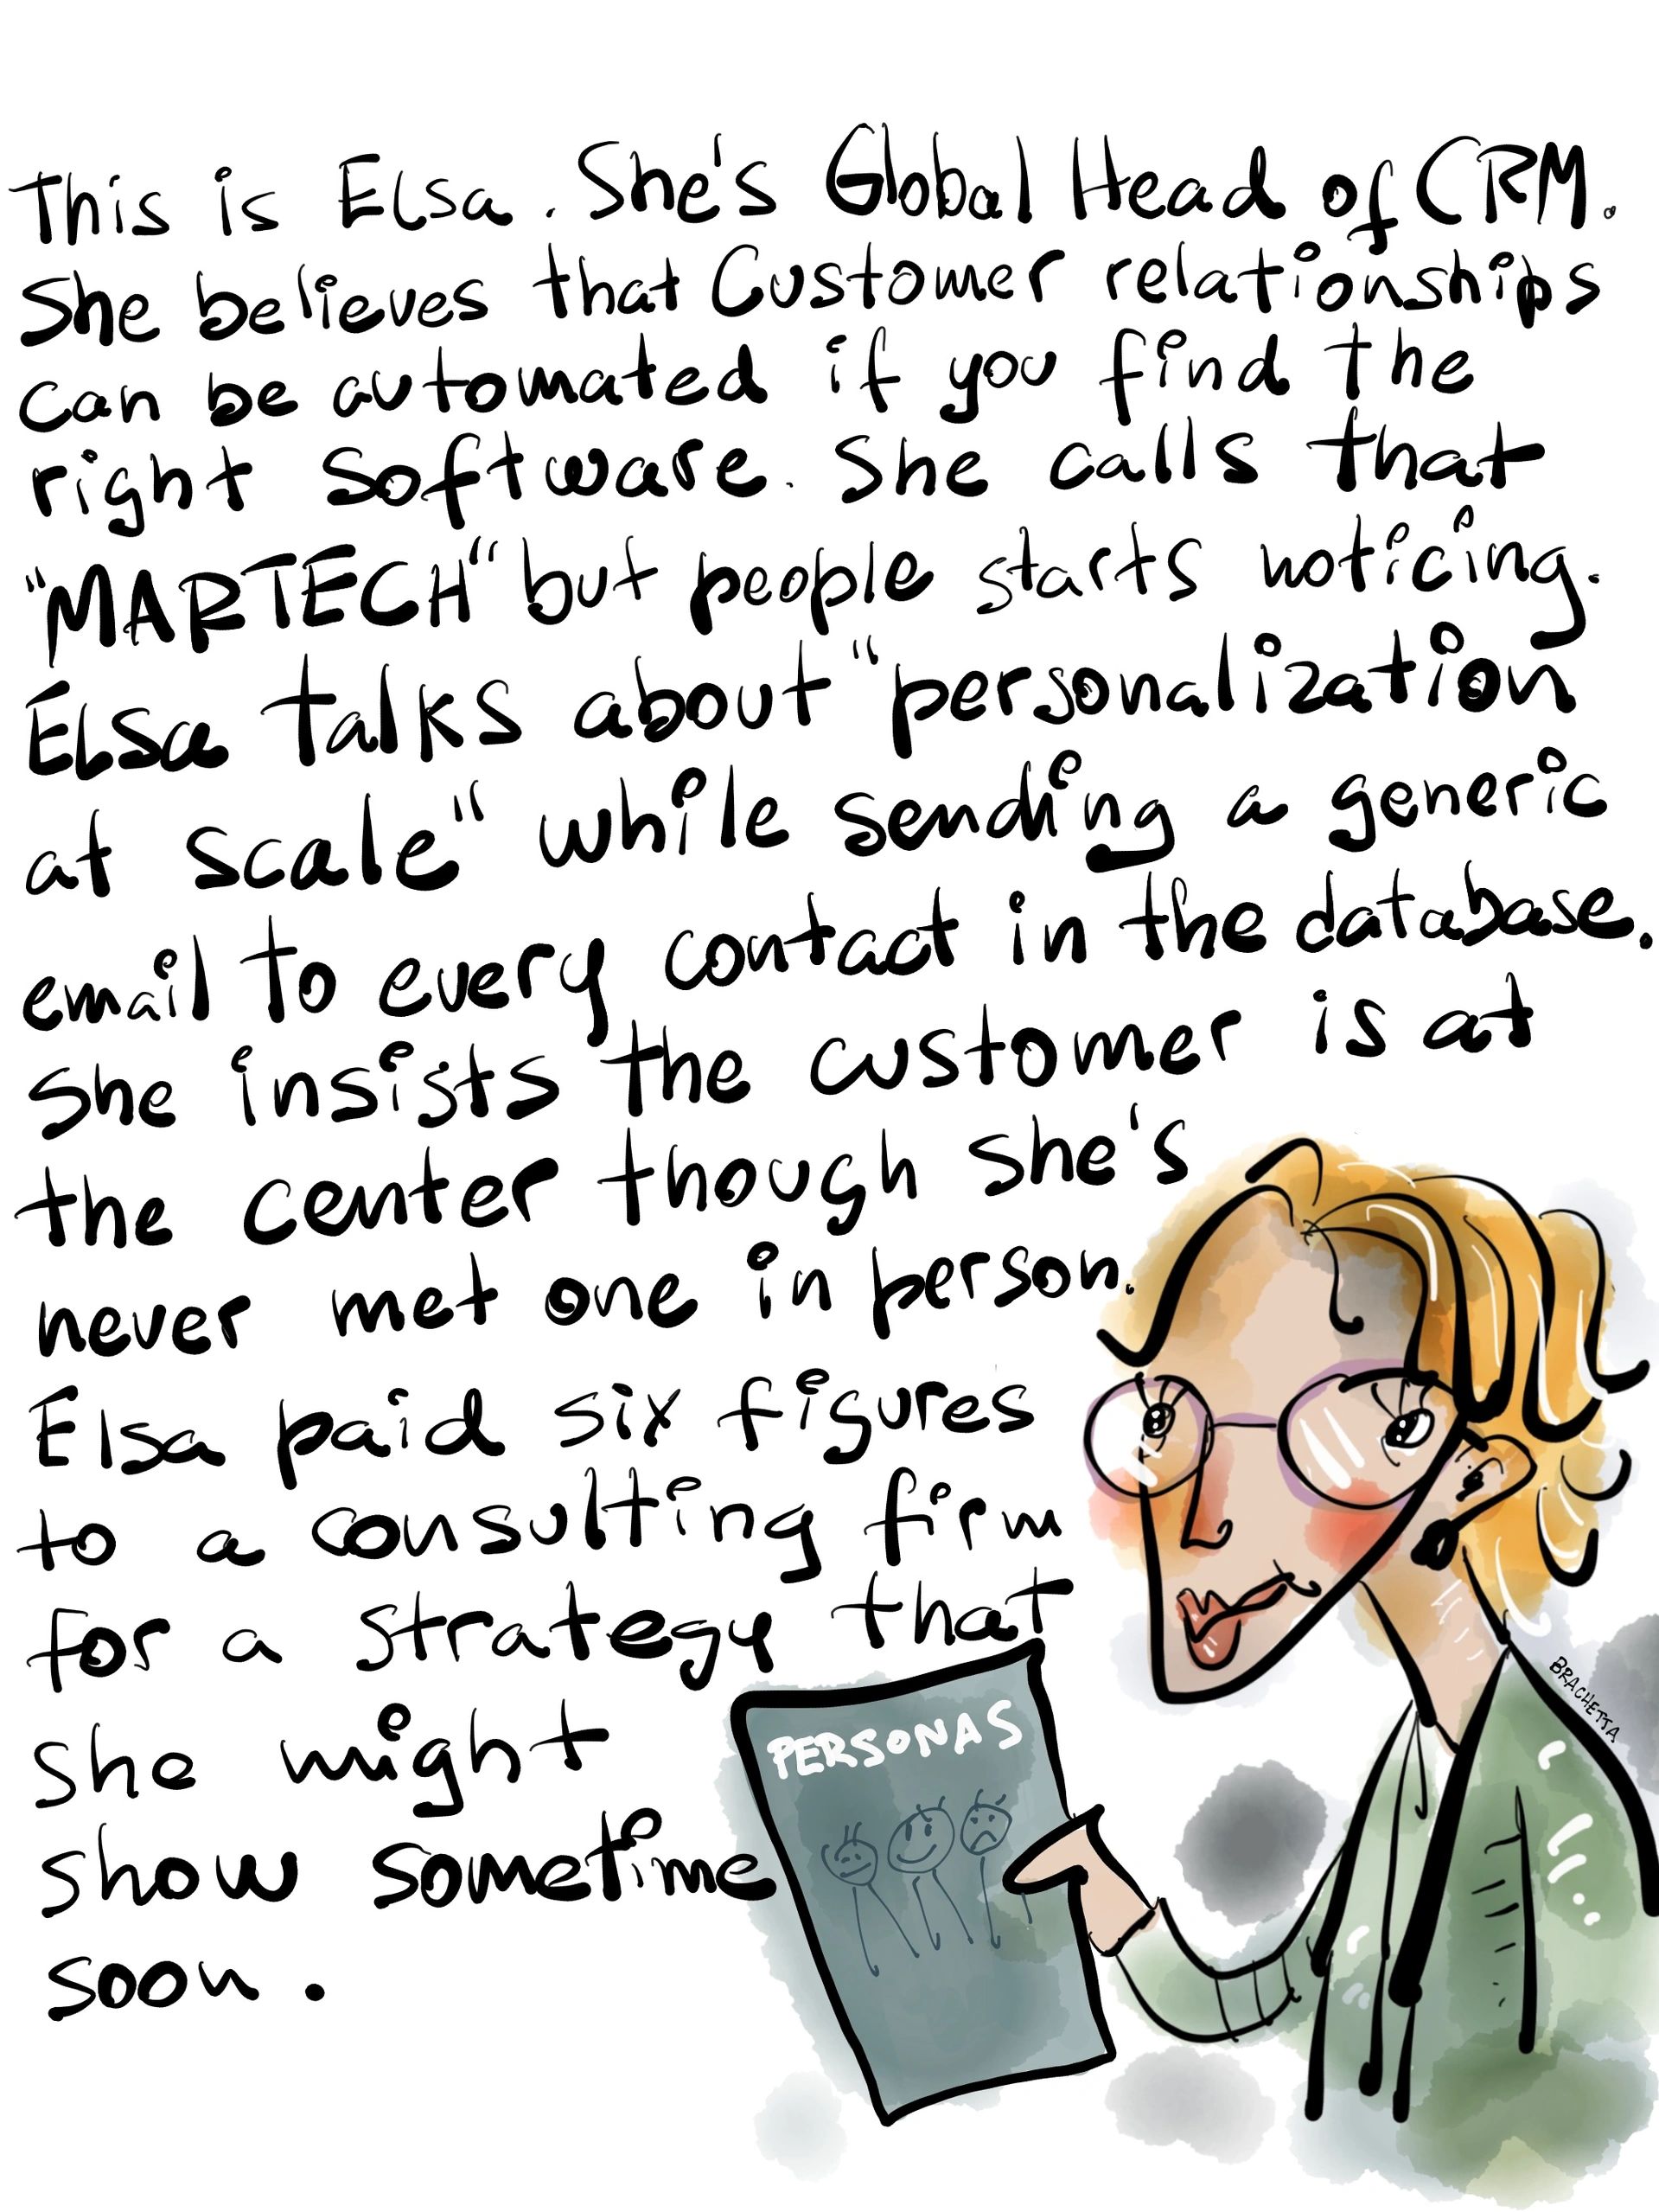 This is Elsa. She's Global Head of CRM.
She believes that Customer relationships
can be automated if you find the
right software. She calls that
"MARTECH" but people starts noticing.
Elsa talks about "personalization
at scale" while sending a generic
email to every contact in the database.
She insists the customer is at
the center though she's
never met one in person.
Elsa paid six figures
to a consulting firm
for a strategy that
she might
show sometime
soon.
PERSONAS
BRACHETTA